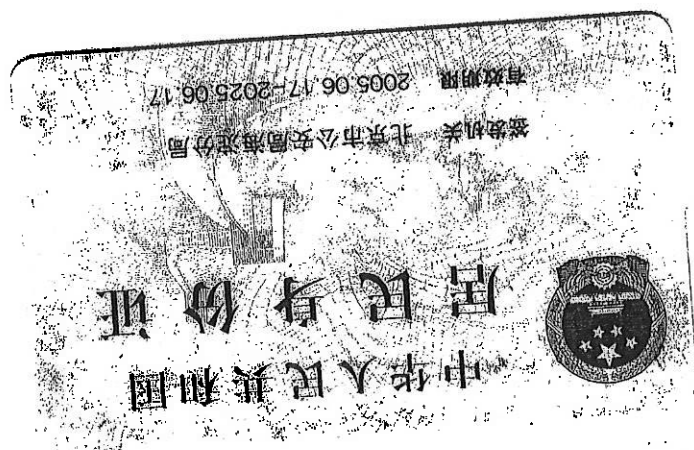 中华人民共和国
居民身份证
签发机关 北京市公安局海淀分局
有效期限 2005.06.17-2025.06.17